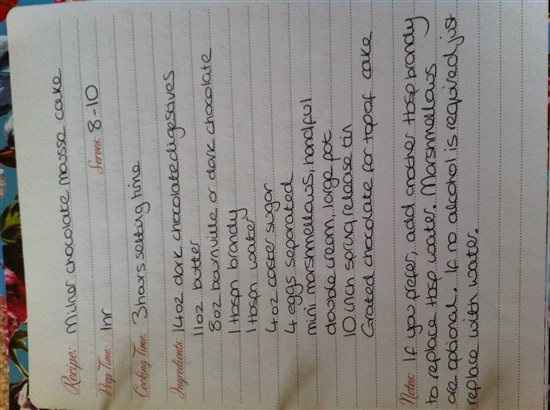 Recipe: Misher chocolate mousse cake
Prep Time: 1hr Serves: 8-10
Cooking Time: 3 hours setting time
Ingredients: 14oz dark chocolate digestives
11oz butter
8oz bournville or dark chocolate
1 tbspn brandy
1 tbspn water
4oz caster sugar
4 eggs separated
mini marshmellows, handful
double cream, large pot
10 inch spring release tin
Grated chocolate for top of cake
Notes: If you prefer, add another tbsp brandy
to replace tbsp water. Marshmellows
are optional. If no alcohol is required just
replace with water.